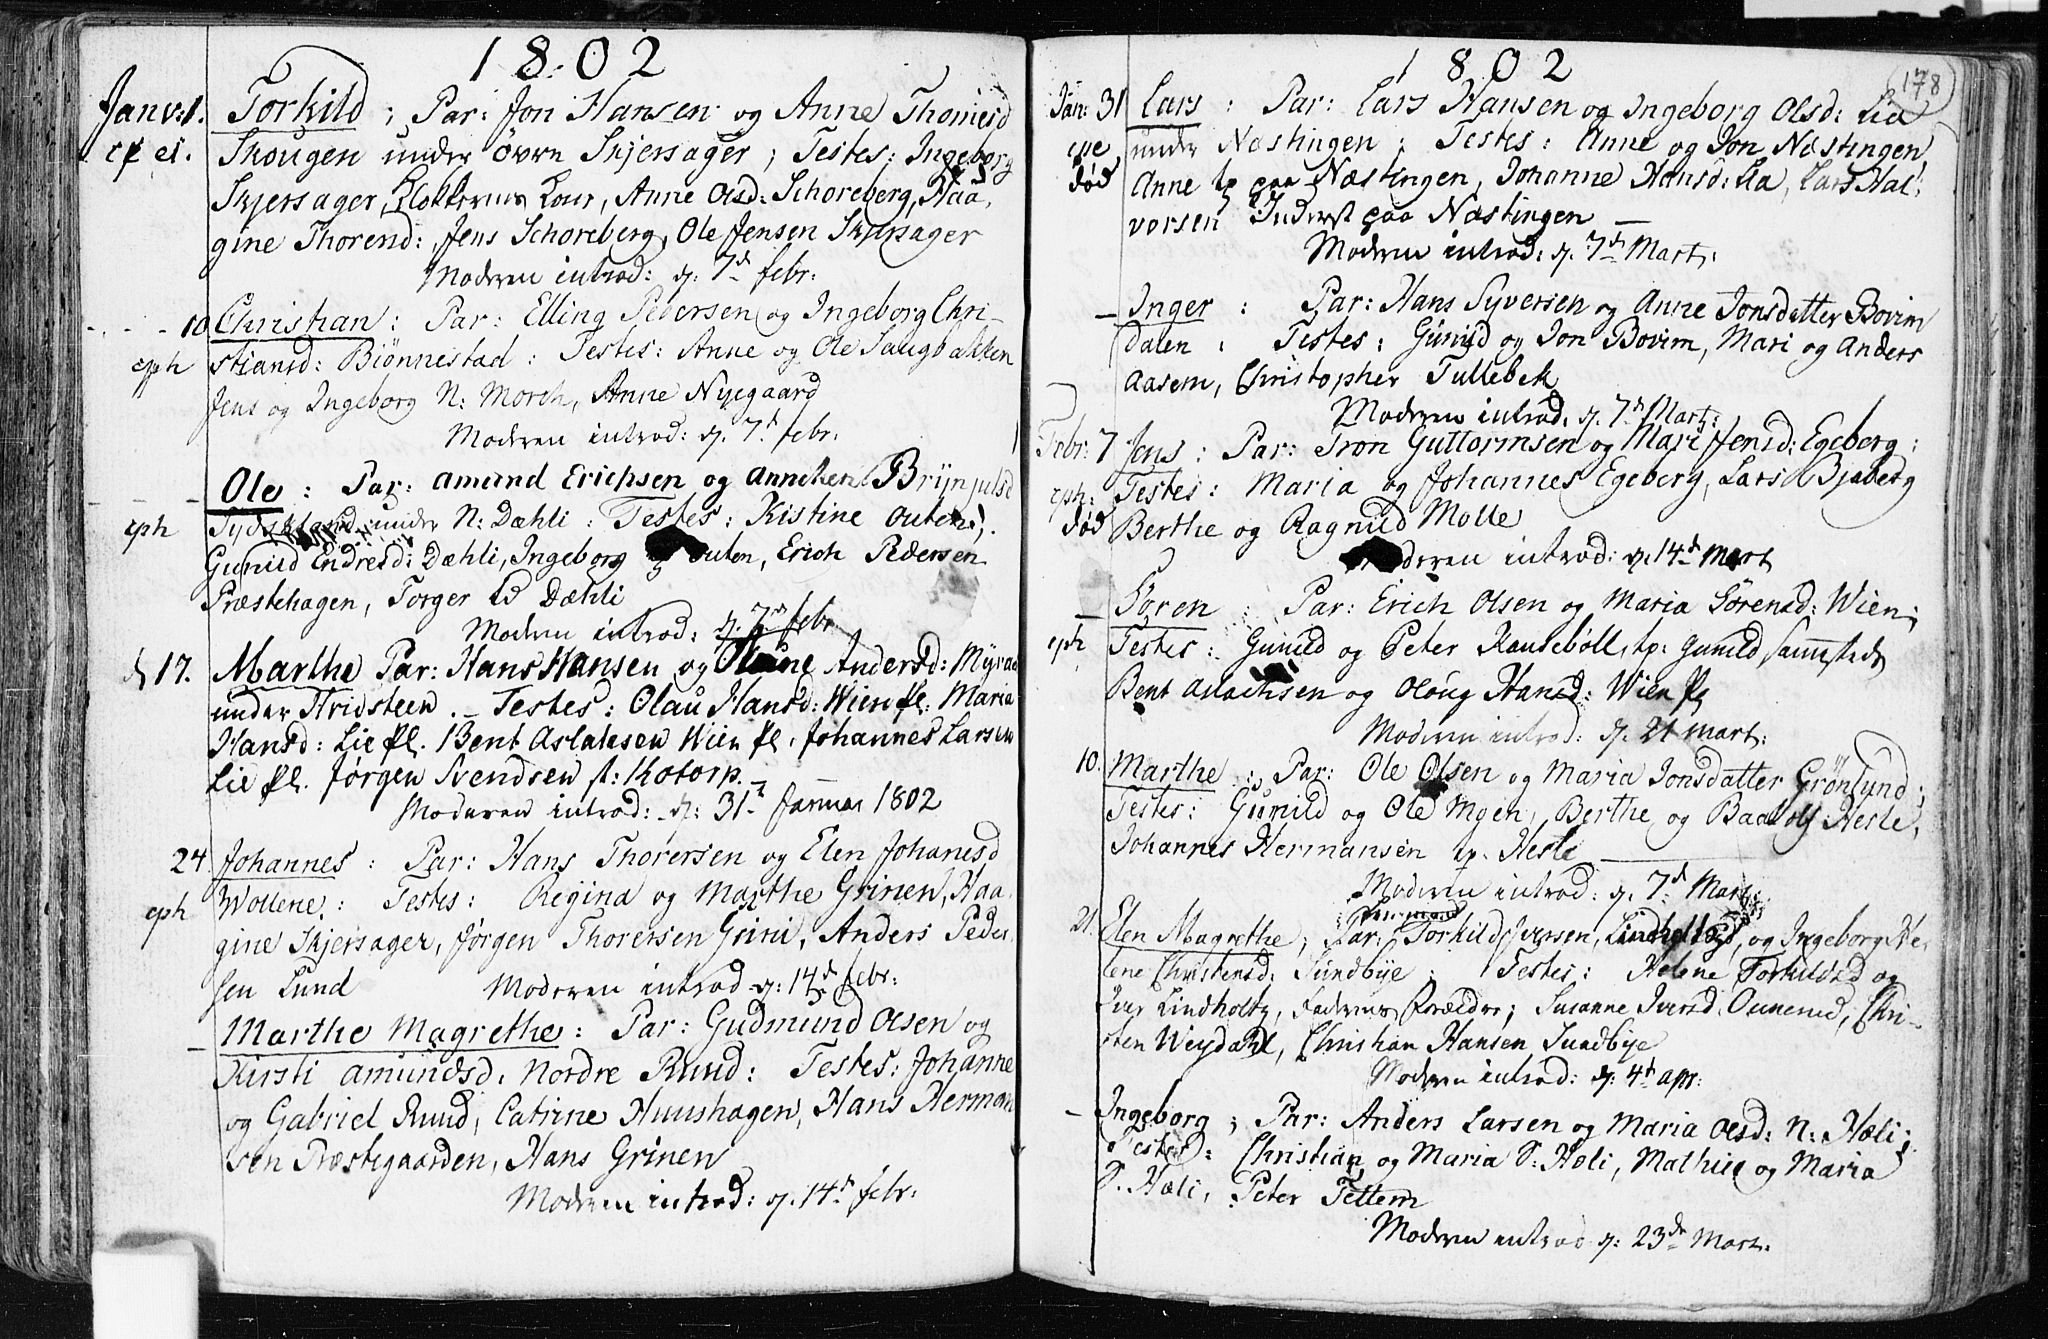 1802
Janv: 1. Torkild ; Par: Jon Hansen og Anne Thomesd
Skougen under övre Skjersager ; Testes: Ingeborg
Skjersager, Klokkerens Kone, Anne Olsd: Schoreberg, Haa,
gine Thorend:, Jens Schoreberg, Ole Jensen Skjersager
Moderen introd: d. 7d febr:
10 Christian : Par: Elling Pedersen og Ingeborg Chri-
eph stiansd: Biönnestad : Testes: Anne og Ole Saugbakken
Jens og Ingeborg N: Morch, Anne Nyegaard
Moderen introd: d. 7d febr:
Ole : Par: Amund Erichsen og Annehen Brynjulsd
eph under N: Dæhli : Testes: Kistine Outen,
Gunild Endresd: Dæhli, Ingeborg Outen, Erich Pedersen
Præstehagen, Torger Dæhli
Moderen introd: d. 7d febr
d 17. Marthe Par: Hans Hansen og Anne Andersd: Myra
under Hvidsteen. – Testes: Olau Hansd: Wien pl: Maria
Hansd: Lie pl. Bent Aslaksen Wien pl. Johannes Larsen
Lie pl. Jørgen Svendsen p: Kotorp.
Moderen introd: d: 31t Januar 1802
24 Johannes : Par: Hans Thorersen og Elen Johanesd
eph Wollene : Testes: Regina og Marthe Grinen, Haa,
gine Skjersager, Jörgen Thorersen Grini, Anders Peder
sen Lund Moderen introd d: 14d febr:
– Marthe Magrethe : Par: Gudmund Olsen og
Kirsti Amundsd: Nordre Ruud : Testes: Johanne
og Gabriel Ruud, Catrine Huushagen, Hans Herman
sen Præstegaarden, Hans Grinen
Moderen introd: d. 14d febr:
178
1802
Jan: 31 Lars : Par: Lars Hansen og Ingeborg Olsd: Lia
under Næstingen ; Testes: Anne og Jon Næstingen
död Anne tp paa Næstingen, Johanne Hansd: Lia, Lars Hal:
vorsen Inderst paa Næstingen –
Moderen introd: d. 7d Mart:
– Inger : Par: Hans Syversen og Anne Jonsdatter Bovim
dalen : Testes: Gunild og Jon Bovim, Mari og Anders
Aasem, Christopher Tullebek
Moderen introd: d. 7d Mart:
Febr: 7 Jens : Par: Tron Guttormsen og Mari Jensd: Egeberg :
eph: Testes: Maria og Johannes Egeberg, Lars Bjaberg
död Berthe og Ragnild Molle
Moderen introd: d. 14d Mart
– Soren : Par: Erich Olsen og Maria Sörensd: Wien ;
eph Testes: Gunild og Peter Ransebøll, tp: Gunild sammesteds
Bent Aslachsen og Oloug Hansd: Wien pl
Moderen introd: d. 21 Mart:
10. Marthe : Par: Ole Olsen og Maria Jonsdatter Grönlund ;
Testes: Gunild og Ole Mgen, Berthe og Baadolf Hesle,
Johannes Hermansen tp. Hesle
Moderen introd: d. 7d Mart:
21. Elen Magrethe ; Par: Torkild Iversen Lindholtz, og Ingeborg He,
lene Christensd: Sundbye : Testes: Helene Torkildsd og
Iver Lindholtz, faderens Forældre ; Susanne Iversd: Ounerud, Chri-
sten Weydahl, Christian Hansen Sundbye
Moderen introd: d: 4d apr:
– Ingeborg ; Par: Anders Larsen og Maria Olsd: N: Hæli ;
Testes: Christian og Maria S: Hæli, Mathie og Maria
S. Hæli, Peter Tettem
Moderen introd d: 23de Mart: